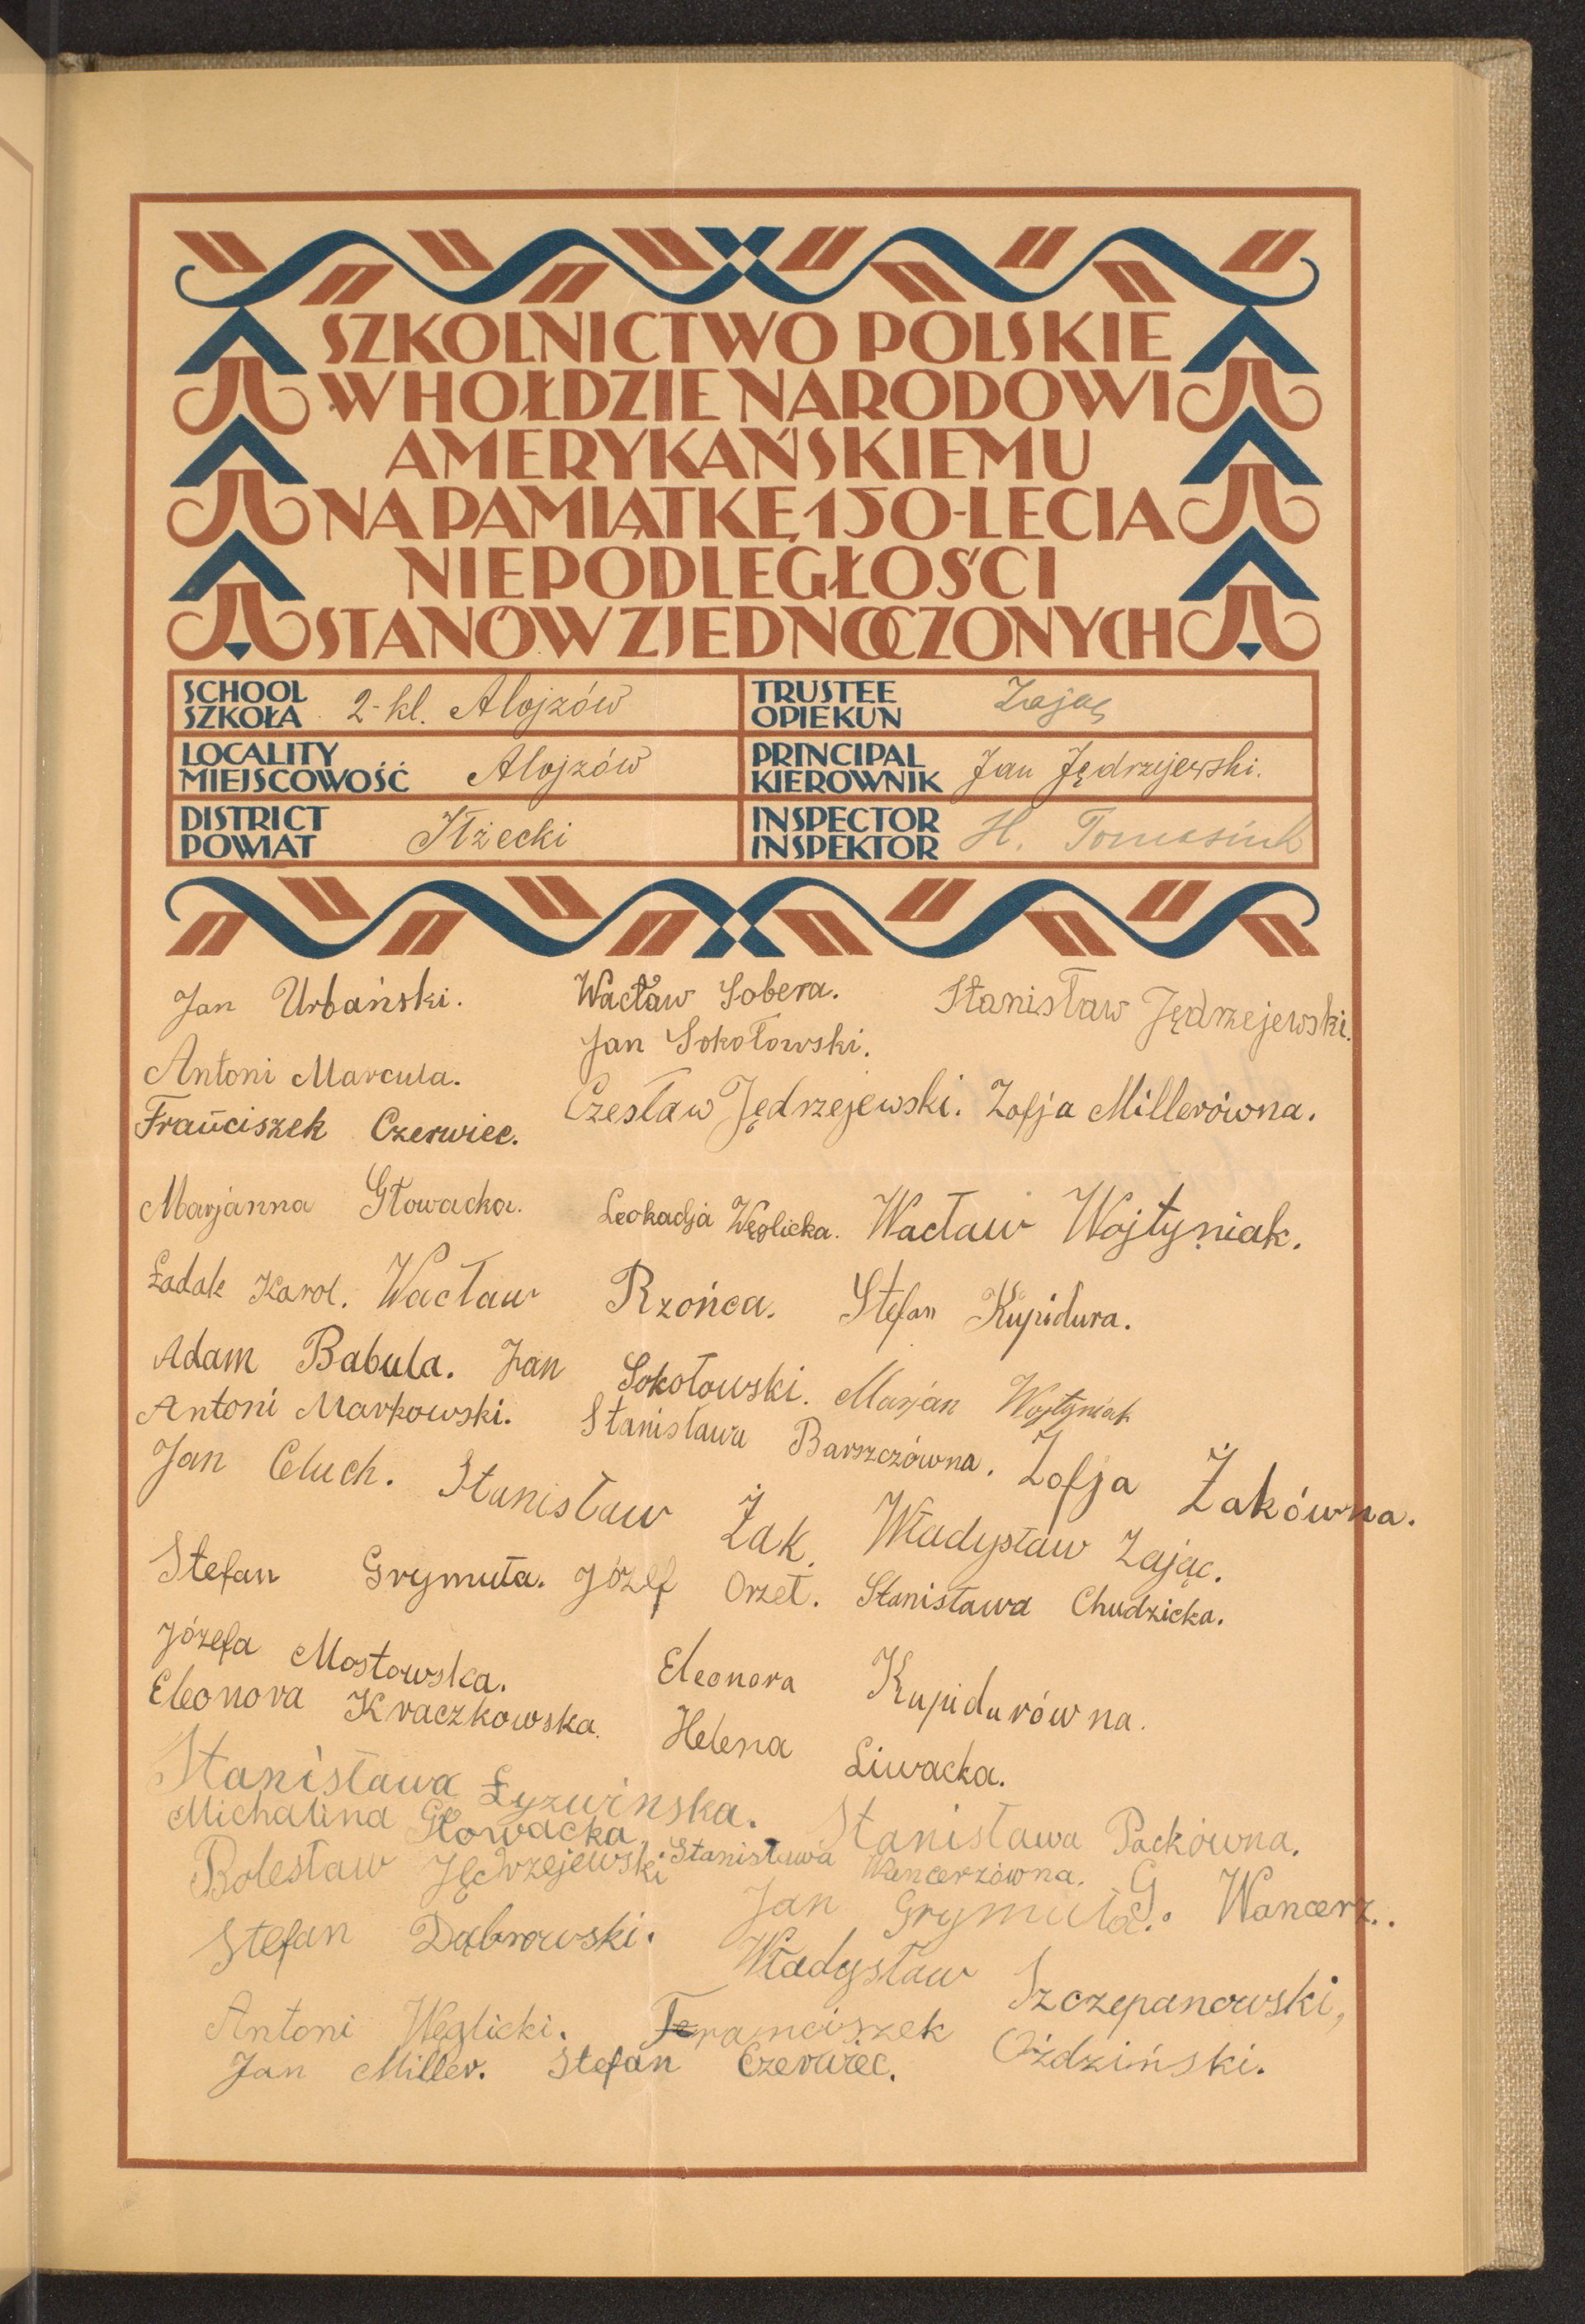 SZKOLNICTWO POLSKIE
W HOŁDZIE NARODOWI
AMERYKAŃSKIEMU
NA PAMIĄTKĘ 150-LECIA
NIEPODLEGŁOŚCI
STANÓW ZJEDNOCZONYCH
SCHOOL
SZKOŁA 2-kl. Alojzów
TRUSTEE
OPIEKUN Zając
LOCALITY
MIEJSCOWOŚĆ Alojzów
PRINCIPAL
KIEROWNIK Jan Jędrzejewski.
DISTRICT
POWIAT Iłżecki
INSPECTOR
INSPEKTOR H. Tomasiuk
Jan Urbański. Wacław Sobera. Stanisław Jędrzejewski.
Jan Sokołowski.
Antoni Marcula.
Czesław Jędrzejewski. Zofja Millerówna.
Franciszek Czerwiec.
Marjanna Głowacka. Leokadja Węglicka. Wacław Wojtyniak.
Ładak Karol. Wacław Rzońca. Stefan Kupidura.
Adam Babula. Jan Sokołowski. Marjan Wojtyniak
Antoni Markowski. Stanisława Barszczówna. Zofja Żakówna.
Jan Celuch. Stanisław Żak. Władysław Zając.
Stefan Grymuła. Józef Orzeł. Stanisława Chudzicka.
Józefa Mostowska. Eleonora Kupidurówna.
Eleonora Kraczkowska. Helena Liwacka.
Stanisława Łyzwinska.
Michalina Głowacka. Stanisława Packówna.
Bolesław Jędrzejewski Stanisława Wancerzówna. G. Wancerz..
Stefan Dąbrowski. Jan Grymuła.
Władysław Szczepanowski,
Antoni Węglicki. Franciszek Oździński.
Jan Miller. Stefan Czerwiec.